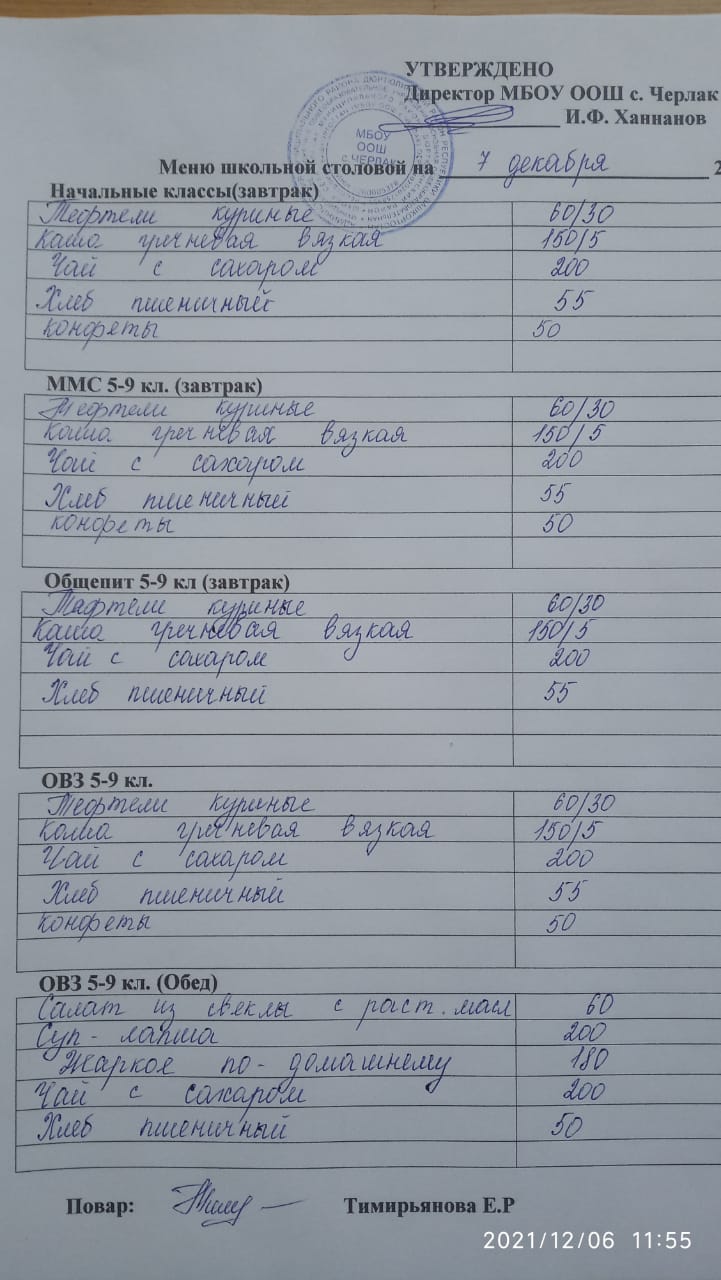 УТВЕРЖДЕНО
Директор МБОУ ООШ с. Черлак
И.Ф. Ханнанов
МБОУ
ООШ
с. ЧЕРЛАК
Меню школьной столовой на 7 декабря 2
Начальные классы(завтрак)
Тефтели куриные 60/30
Каша гречневая вязкая 150/5
Чай с сахаром 200
Хлеб пшеничный 55
конфеты 50
ММС 5-9 кл. (завтрак)
Тефтели куриные 60/30
Каша гречневая вязкая 150/5
Чай с сахаром 200
Хлеб пшеничный 55
конфеты 50
Общепит 5-9 кл (завтрак)
Тафтели куриные 60/30
Каша гречневая вязкая 150/5
Чай с сахаром 200
Хлеб пшеничный 55
ОВЗ 5-9 кл.
Тефтели куриные 60/30
Каша гречневая вязкая 150/5
Чай с сахаром 200
Хлеб пшеничный 55
конфеты 50
ОВЗ 5-9 кл. (Обед)
Салат из свеклы с раст. масл 60
Суп - лапша 200
Жаркое по - домашнему 180
Чай с сахаром 200
Хлеб пшеничный 50
Повар: Тимирьянова Е.Р
2021/12/06 11:55